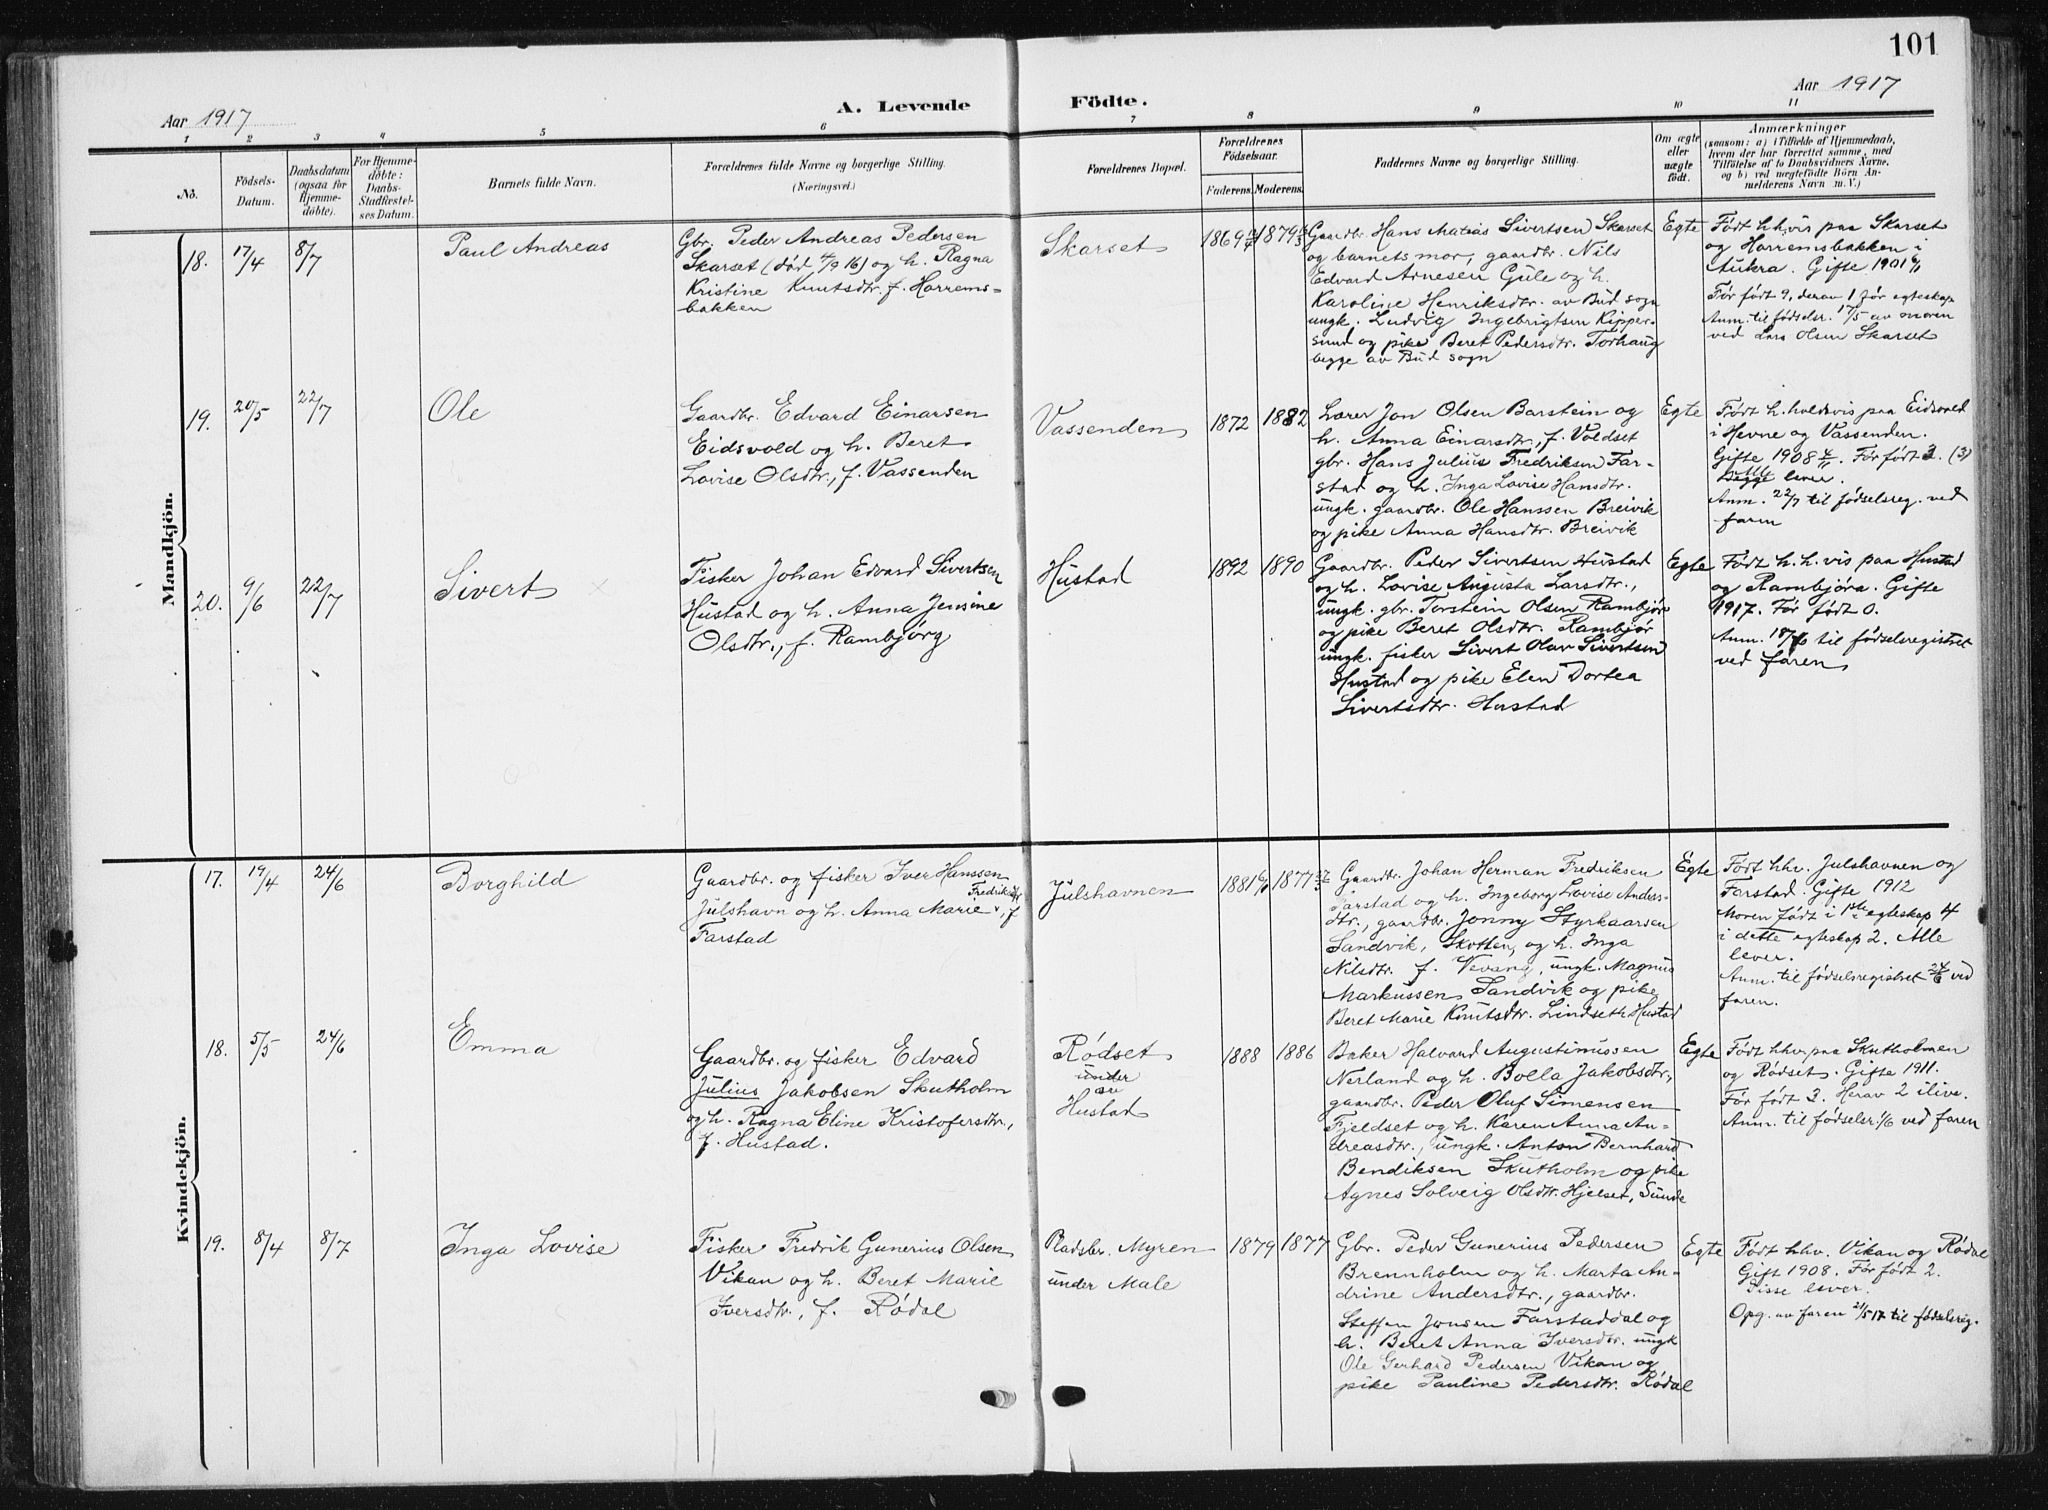 101
Aar 1917
A. Levende Födte.
Aar 1917
1 2 3 4 5 6 7 8 9 10 11
No.
Födsels-
Datum.
Daabsdatum
(ogsaa for
Hjemme-
döbte).
For Hjemme-
döbte:
Daabs-
Stadfæstel-
ses Datum.
Barnets fulde Navn.
Forældrenes fulde Navne og borgerlige Stilling.
(Næringsvei.)
Forældrenes Bopæl.
Forældrenes
Födselsaar.
Faderens. Moderens.
Faddernes Navne og borgerlige Stilling.
Om ægte
eller
uægte
födt.
Anmærkninger
(saasom: a) i Tilfælde af Hjemmedaab,
hvem der har forrettet samme, med
Tilföielse af to Daabsvidners Navne,
og b) ved uægtefödte Börn An-
melderens Navn m. V.)
Mandkjön.
18.
17/4
8/7
Paul Andreas
Gbr. Peder Andreas Pedersen
Skarset (død 4/9 16) og h. Ragna
Kristine Knutsdtr. f. Harrems-
bakken
Skarset
1869
1879
Gaardbr. Hans Matias Sivertsen Skarset
og barnets mor, gaardbr. Nils
Edvard Arnesen Gule og h.
Karoline Henriksdtr. av Bud sogn
ungk. Ludvig Ingebrigtsen Kipper-
sund og pike Beret Pedersdtr. Torhaug
begge av Bud sogn
Egte
Født hhvis paa Skarset
og Harremsbakken i
Aukra. Gifte 1901
Før født 9, derav 1 før egteskap
Anm. til fødselsr. 17/5 av moren
ved Lars Olsen Skarset
19.
20/5
22/7
Ole
Gaardbr. Edvard Einarsen
Eidsvold og h. Beret
Lovise Olsdtr., f. Vassenden
Vassenden
1872
1882
Lærer Jon Olsen Barstein og
h. Anna Einarsdtr., f. Voldset
gbr. Hans Julius Fredriksen Far-
stad og h. Inga Lovise Hansdtr.
ungk. gaardbr. Ole Hanssen Breivik
og pike Anna Hansdtr. Breivik
Egte
Født h. holdsvis paa Eidsvold
i Hevne og Vassenden.
Gifte 1908 4/11. Før født 3. (3)
Alle lever.
Anm. 22/7 til fødselsreg. ved
faren
20.
9/6
22/7
Sivert
Fisker Johan Edvard Sivertsen
Hustad og h. Anna Jensine
Olsdtr., f. Rambjørg
Hustad
1892
1890
Gaardbr. Peder Sivertsen Hustad
og h. Lovise Augusta Larsdtr.,
ungk. gbr. Torstein Olsen Rambjør
og pike Beret Olsdtr. Rambjør
ungk. fisker Sivert Olav Sivertsen
Hustad og pike Elen Dortea
Sivertsdtr. Hustad
Egte
Født h. h. vis paa Hustad
og Rambjøra. Gifte
1917. Før født 0.
Anm. 18/6 til fødselsregistret
ved faren
Kvindekjön.
17.
19/4
24/6
Borghild
Gaardbr. og fisker Iver Hanssen
Julshavn og h. Anna Marie Fredriksdtr., f.
Farstad
Julshavnen
1881
1877
Gaardbr. Johan Herman Fredriksen
Farstad og h. Ingeborg Lovise Anders-
dtr., gaardbr. Jonny Styrkaarsen
Sandvik, Skotten, og h. Inga
Nilsdtr. f. Vevang, ungk. Magnus
Markussen Sandvik og pike
Beret Marie Knutsdtr. Lindseth Hustad
Egte
Født hhv. Julshavnen og
Farstad. Gifte 1912
Moren født i 1ste egteskap 4
i dette egteskap 2. Alle
lever.
Anm. til fødselsregistret 24/6 ved
faren.
18.
5/5
24/6
Emma
Gaardbr. og fisker Edvard
Julius Jakobsen Skutholm
og h. Ragna Eline Kristofersdtr.,
f. Hustad.
Rødset
under
av
Hustad
1888
1886
Baker Halvard Augustinussen
Nerland og h. Bolla Jakobsdtr,
gaardbr. Peder Oluf Simensen
Fjeldset og h. Karen Anna An-
dreasdtr., ungk. Anton Bernhard
Bendiksen Skutholm og pike
Agnes Solveig Olsdtr. Hjelset, Sunde
Egte
Født hhv. paa Skutholmen
og Rødset. Gifte 1911.
Før født 3. Herav 2 ilive.
Anm. til fødselsr. 1/6 ved faren
19.
8/4
8/7
Inga Lovise
Fisker Fredrik Gunerius Olsen
Vikan og h. Beret Marie
Iversdtr., f. Rødal
Pladsbr. Myren
under Male
1879
1877
Gbr. Peder Gunerius Pedersen
Brennholm og h. Marta An-
drine Andersdtr., gaardbr.
Steffen Jonsen Farstaddal og
h. Beret Anna Iversdtr. ungk
Ole Gerhard Pedersen Vikan og
pike Pauline Pedersdtr. Rødal
Egte
Født hhv. Vikan og Rødal
Gift 1908. Før født 2.
Disse lever.
Opg. av faren 21/5 17 til fødselsreg.